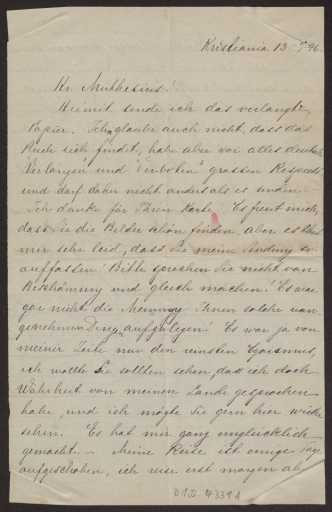 Kristiania 13 96.
Hr. Muthesius!
Hiermit sende ich das verlangte
Papier. Ich glaube auch nicht, dass das
Buch sich findet, habe aber vor alles
Verlangen und "Verboten" grossen Respect
und darf daher nicht anders als es senden.
Ich danke für Ihren Karte. Es freut mich,
dass Sie die Bilder schön finden, aber es thut
mir sehr leid, dass Sie meine so
auffassen. Bitte sprechen Sie nicht von
Beschämung und gleich machen! Es war
gar nicht die Meinung Ihnen solche un
angenehmen Dinge aufzulegen! Es war ja von
meiner Seite nur den reinsten Egoismus,
ich wollte Sie sollten sehen, dass ich doch
Wahrheit von meinen Lande gesprochen
habe, und ich möchte Sie gern hier wieder
sehen. Es hat mir ganz unglücklich
gemacht. – Meine Reise ist einige Tage
aufgeschoben, ich reise erst morgen ab